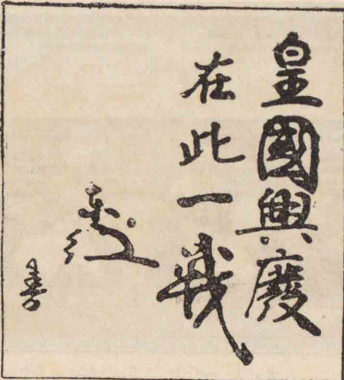 皇國興廢
在此一戰
書